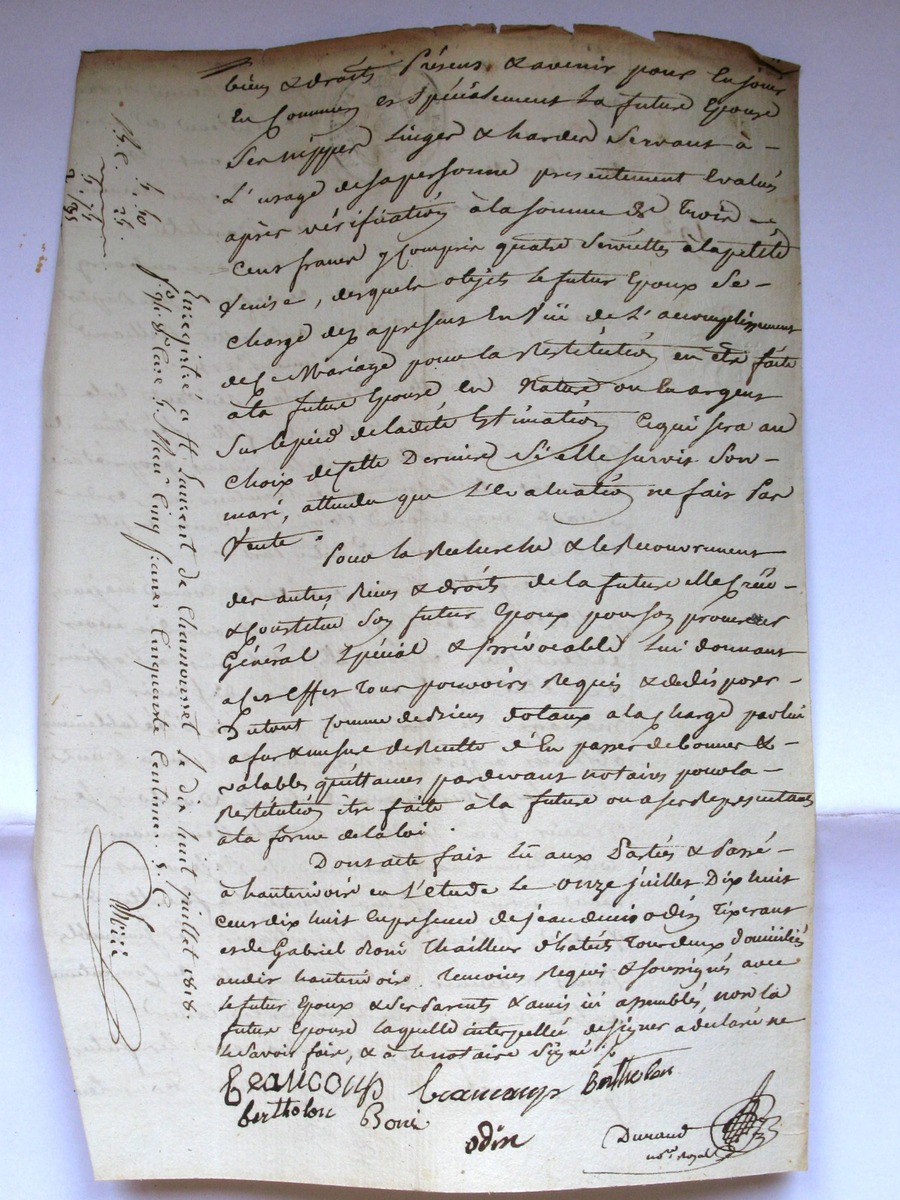 biens & droits Présens & avenir pour En jouir
En Commun et Spécialement La future Epouse
Ses nippes Linges & hardes Servant à -
L'usage de sa personne presentement Evalués
après vérification à la somme de Trois -
Cens francs y Compris quatre Serviettes à la petite
Venise, desquels objets Le futur Epoux Se -
Charge des apresent En Vüe de L'accomplissement
de Ce Mariage pour la Restitution en être faite
à la future Epouse En Nature ou En argent
Sur le pied de ladite Estimation, Ce qui sera au
Choix de Cette Derniere Si elle survit Son -
mari, attendu que L'Evaluation ne fait Pas
Vente.
Pour la Recherche & le Recouvrement
des autres Biens & droits de la future elle Crée -
& Constitue Son futur Epoux pour son procureur
Général Spécial & Irrévocable Lui donnant
a Cet Effet Tous pouvoirs Requis & de disposer -
du tout Comme de Biens dotaux a la Charge par lui
a fur & mesure de Recette d'En passer de bonnes & -
valables quittances pardevant notaires pour la -
Restitution être faite à la future ou a ses Représentans
à la forme de la loi.
Dont acte fait Lû aux Parties & Passé -
à hauterivoire en L'étude Le onze juillet Dix huit
Cent dix huit En présence de jean denis odin Tixerant
et de Gabriel Boni Thailleur d'habits Tous deux domiciliés
audit hauterivoire Temoins Requis & soussignés avec
le futur Epoux & ses Parents & amis ici assemblés, non la
future Epouse laquelle interpellée de signer a déclaré ne
le savoir faire, & a le notaire Signé.
Beaucoup Beaucoup Bertholon
bertholon Boni
odin
Durand
no.re Royal
Enregistré à St Laurent de Chamousset le dix huit juillet 1818.
Reçu Cinq francs Cinquante Centimes
5. 50